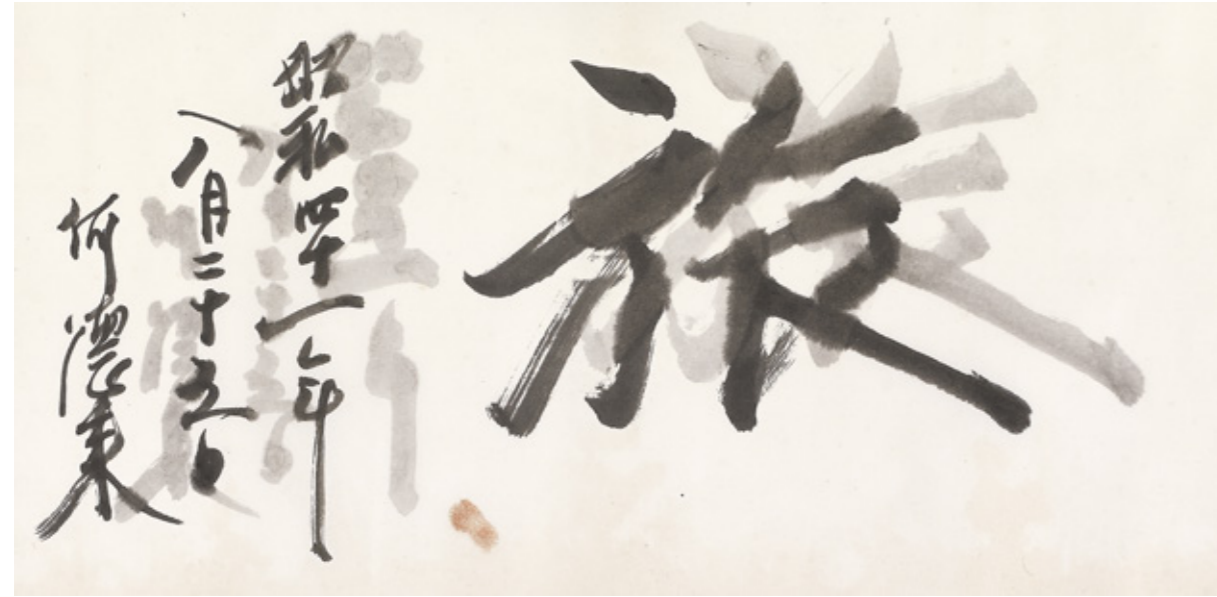 旅
昭和四十一年
八月二十五日
何德来